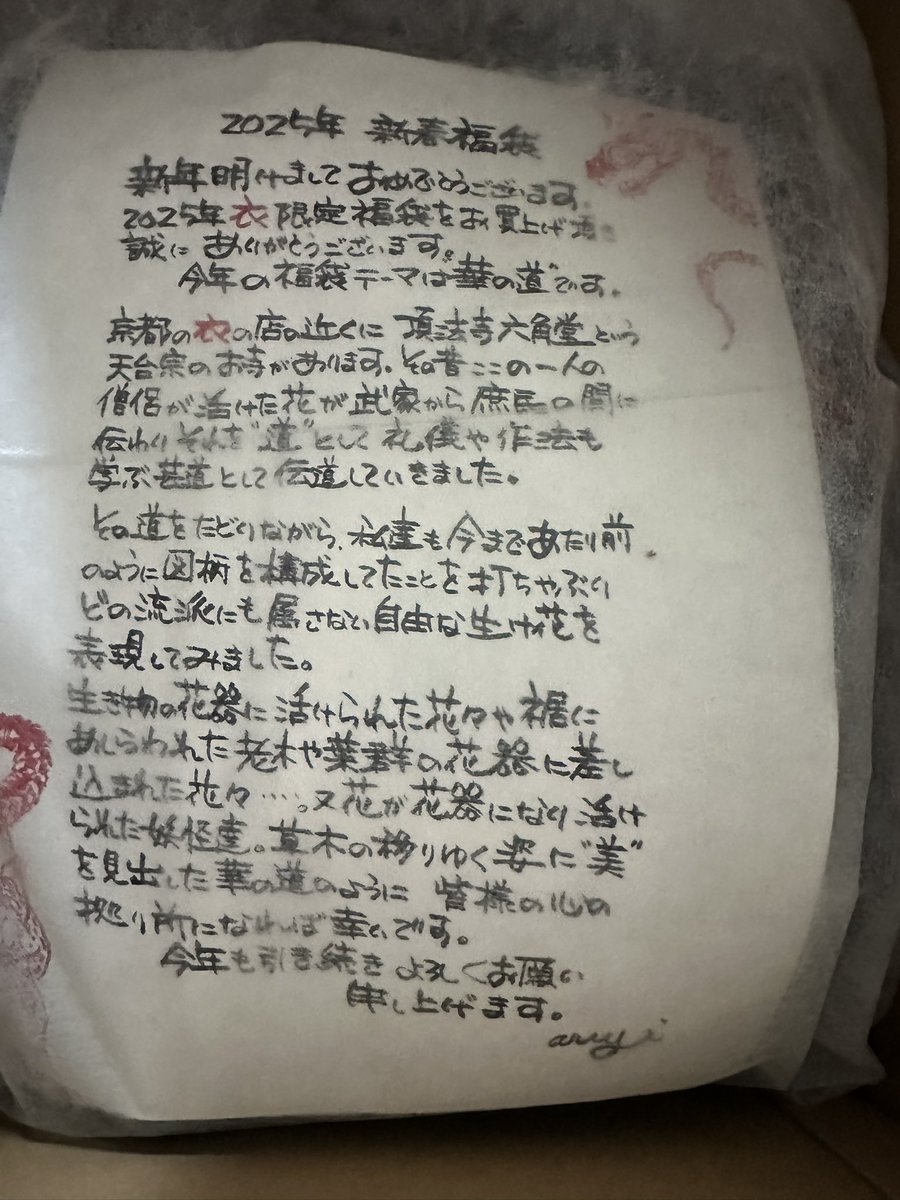 2025年 新春福袋
新年明けまして おめでとうございます。
2025年 衣 限定福袋をお買上げ頂
誠に ありがとうございます。
今年の福袋テーマは"華の道"です。
京都の衣の店の近くに 頂法寺六角堂という
天台宗のお寺があります。その昔ここの一人の
僧侶が活けた花が武家から庶民の間に
伝わりそれを"道"として礼儀や作法も
学ぶ芸道として伝道していきました。
その道をたどりながら、私達も今まであたり前
のように図柄を構成してたことを打ちやぶり
どの流派にも属さない自由な生け花を
表現してみました。
生き物の花器に活けられた花々や裾に
あしらわれた老木や葉群の花器に差し
込まれた花々……。又花が花器になり活け
られた妖怪達。草木の移りゆく姿に"美"
を見出した華の道のように 皆様の心の
拠り所になれば幸いです。
今年も引き続き よろしくお願い
申し上げます。